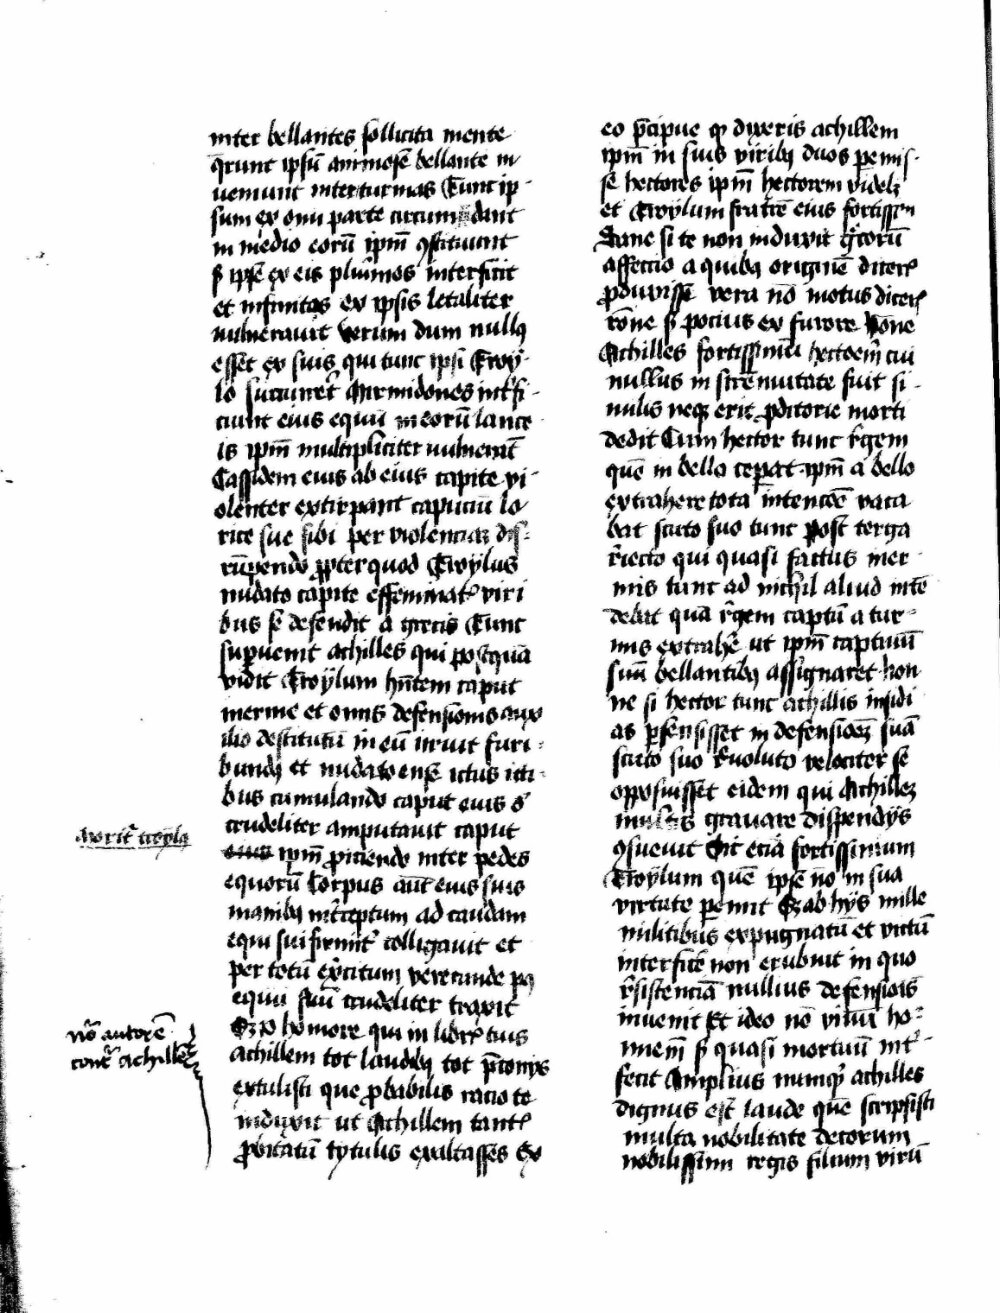 inter bellantes sollicita mente
q̄runt ipsū animose bellante in
ueniunt inter turmas Tunc ip-
sum ex oni parte circumdant
in medio eorū ipm̄ ꝯstituunt
s̄ ipse ex eis plurimos interficit
et infinitos ex ipsis letaliter
vulnerauit verum dum nullꝰ
esset ex suis qui tunc ipsi Troy-
lo sucurrer̄t Mirmidones int̄fi-
ciunt eius equū in eorū lance
is ipm̄ multipliciter vulnerāt
Cassidem eius ab eius capite vi-
olenter extirpant capuciū lo
rice sue sibi per violenciaʒ dis-
rūpendo ꝓpter quod Troylus
nudato capite effeminat᷒ viri
bus se defendit a grecis Tunc
supuenit achilles qui postquā
vidit Troylum hn̄tem caput
inerme et omīs defensionis auxi
ilio destitutū in eū irruit furi-
bundꝰ et nudato ense ictus icti-
bus cumulando caput eius
crudeliter amputauit caput
eius ipm̄ ꝓiciendo inter pedes
equorū Corpus aūt eius suis
manibꝰ int̄ceptum ad caudam
equi sui firmit᷒ colligauit et
per totū ex̄citum verecunde pꝰ
equū suū crudeliter traxit
Morit᷒ troylꝰ
Sʒ o homore qui in libr̄ tuis
nō autorē
cont᷒ achillē
achillem tot laudibꝰ tot p̄conijs
extulisti que ꝓbabilis racio te
induxit ut Achillem tant᷒
ꝓbitatū tytulis exaltasses ex
eo p̄cipue ꝙ dixeris achillem
ipm̄ in suis viribꝰ duos pemis-
se hectores ipm̄ hectorem videlʒ
et Troylum fratrē eius fortissm̄
Sane si te non induxit gͬcorū
affectio a quibꝰ originē diceris
ꝓduxisse vera nō motus diceris
rōne s̄ pocius ex furore None
Achilles fortissimū hectoem̄ cui
nullus in strēnuitate fuit si-
milis neqꝫ erit ꝓditorie morti
dedit Cum hector tunc r̄gem
quē in bello cepat ipm̄ a bello
extrahere tota intencōe vaca
bat scuto suo tunc post terga
r̄iecto qui quasi factus iner
mis tunc ad nichil aliud intē
debat quā r̄gem captū a tur-
mis extrahē ut ipm̄ captiuū
suū bellantibꝰ assignaret Non
ne si hector tunc achillis insidi
as p̄sensisset in defensiōeʒ suā
scuto suo r̄uoluto velociter se
opposuisset eidem qui Achilleʒ
multis grauare dispendijs
ꝯsueuit Sic eciā fortissimum
Troylum quē ipse nō in sua
virtute pemit Sʒ ab hijs mille
militibus expugnatū et victū
interficē non erubuit in quo
r̄sistenciā nullius defensiōis
inuenit Et ideo nō viuū ho-
minem̄ s̄ quasi mortuū int᷒
fecit Amplius numqꝫ achilles
dignus est laude quē scripsisti
multa nobilitate decorum
nobilissimi regis filium virū